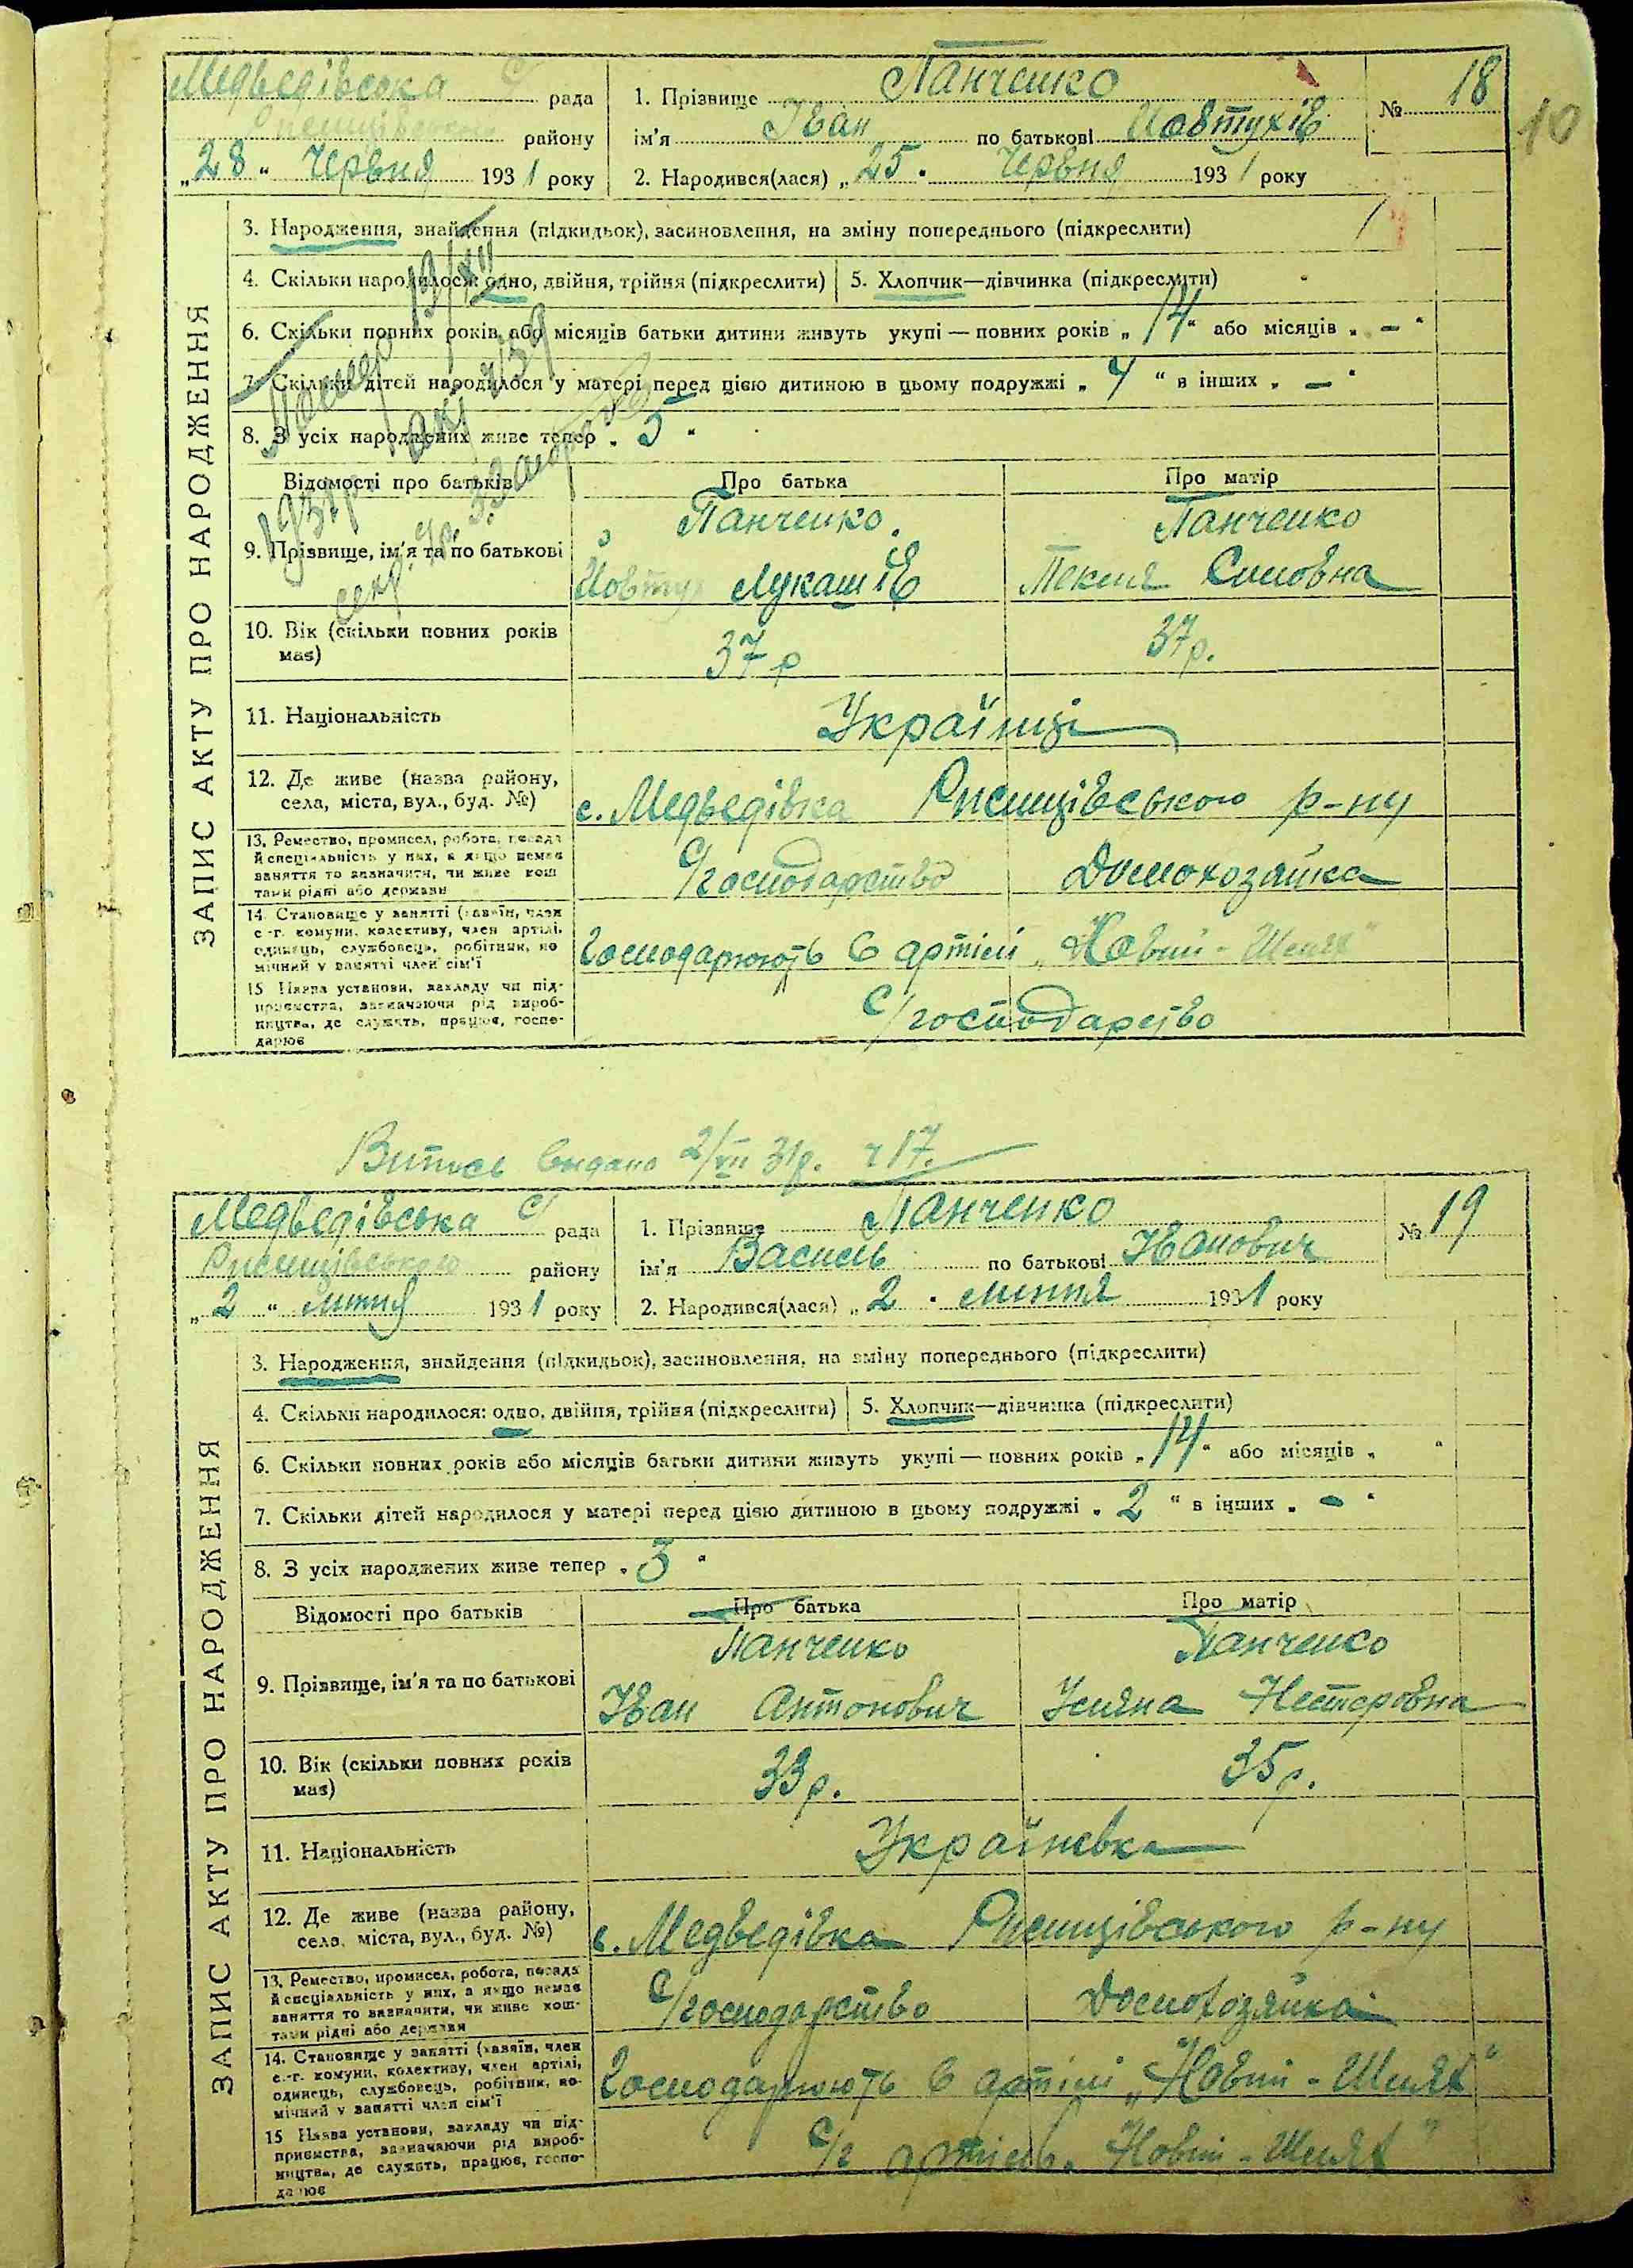 10
Медведівська с рада
району
„28“ Червня 1931 року
1. Прізвище Панченко
ім'я Іван по батькові Йовтухів
2. Народився(лася) „25“ Червня 1931 року
№ 18
ЗАПИС АКТУ ПРО НАРОДЖЕННЯ
3. Народження, знайдення (підкидьок), засиновлення, на зміну попереднього (підкреслити)
4. Скільки народилося: одно, двійня, трійня (підкреслити) 5. Хлопчик—дівчинка (підкреслити)
6. Скільки повних років або місяців батьки дитини живуть укупі — повних років „14“ або місяців „—“
7. Скільки дітей народилося у матері перед цією дитиною в цьому подружжі „4“ в інших „—“
8. З усіх народжених живе тепер „5“
Помер 13/XII
1931р. акт
секр.
Відомості про батьків Про батька Про матір
Панченко Панченко
9. Прізвище, ім'я та по батькові Йовтух Лукашів Текля Симовна
10. Вік (скільки повних років має) 37 р 37 р.
11. Національність Українці
12. Де живе (назва району, села, міста, вул., буд. №) с. Медведівка Рисищівського р-ну
13. Ремество, промисел, робота, посада
й спеціальність у них, а якщо немає
заняття то зазначити, чи живе кош-
тами рідні або держави
С/господарство Домохозяйка
14. Становище у занятті (хазяїн, член
с.-г. комуни, колективу, член артілі,
одинець, службовець, робітник, по-
мічний у занятті член сім'ї
Господарюють в артілі „Новий-Шлях“
15 Назва установи, закладу чи під-
приємства, зазначаючи рід вироб-
ництва, де служить, працює, госпо-
дарює
С/господарство
Витись видано 2/VII 31р. ч 17.
Медведівська с/ рада
Рисищівського району
„2“ липня 1931 року
1. Прізвище Панченко
ім'я Василь по батькові Іванович
2. Народився(лася) „2“ липня 1931 року
№ 19
ЗАПИС АКТУ ПРО НАРОДЖЕННЯ
3. Народження, знайдення (підкидьок), засиновлення, на зміну попереднього (підкреслити)
4. Скільки народилося: одно, двійня, трійня (підкреслити) 5. Хлопчик—дівчинка (підкреслити)
6. Скільки повних років або місяців батьки дитини живуть укупі — повних років „14“ або місяців „ “
7. Скільки дітей народилося у матері перед цією дитиною в цьому подружжі „2“ в інших „—“
8. З усіх народжених живе тепер „3“
Відомості про батьків Про батька Про матір
Панченко Панченко
9. Прізвище, ім'я та по батькові Іван Антонович Уляна Нестеровна
10. Вік (скільки повних років має) 33 р. 35 р.
11. Національність Українська
12. Де живе (назва району, села, міста, вул., буд. №) с. Медведівка Рисищівського р-ну
13. Ремество, промисел, робота, посада
й спеціальність у них, а якщо немає
заняття то зазначити, чи живе кош-
тами рідні або держави
С/господарство Домохозяйка
14. Становище у занятті (хазяїн, член
с.-г. комуни, колективу, член артілі,
одинець, службовець, робітник, по-
мічний у занятті член сім'ї
Господарюють в артілі „Новий-Шлях“
15 Назва установи, закладу чи під-
приємства, зазначаючи рід вироб-
ництва, де служить, працює, госпо-
дарює
С/г артіль „Новий-Шлях“